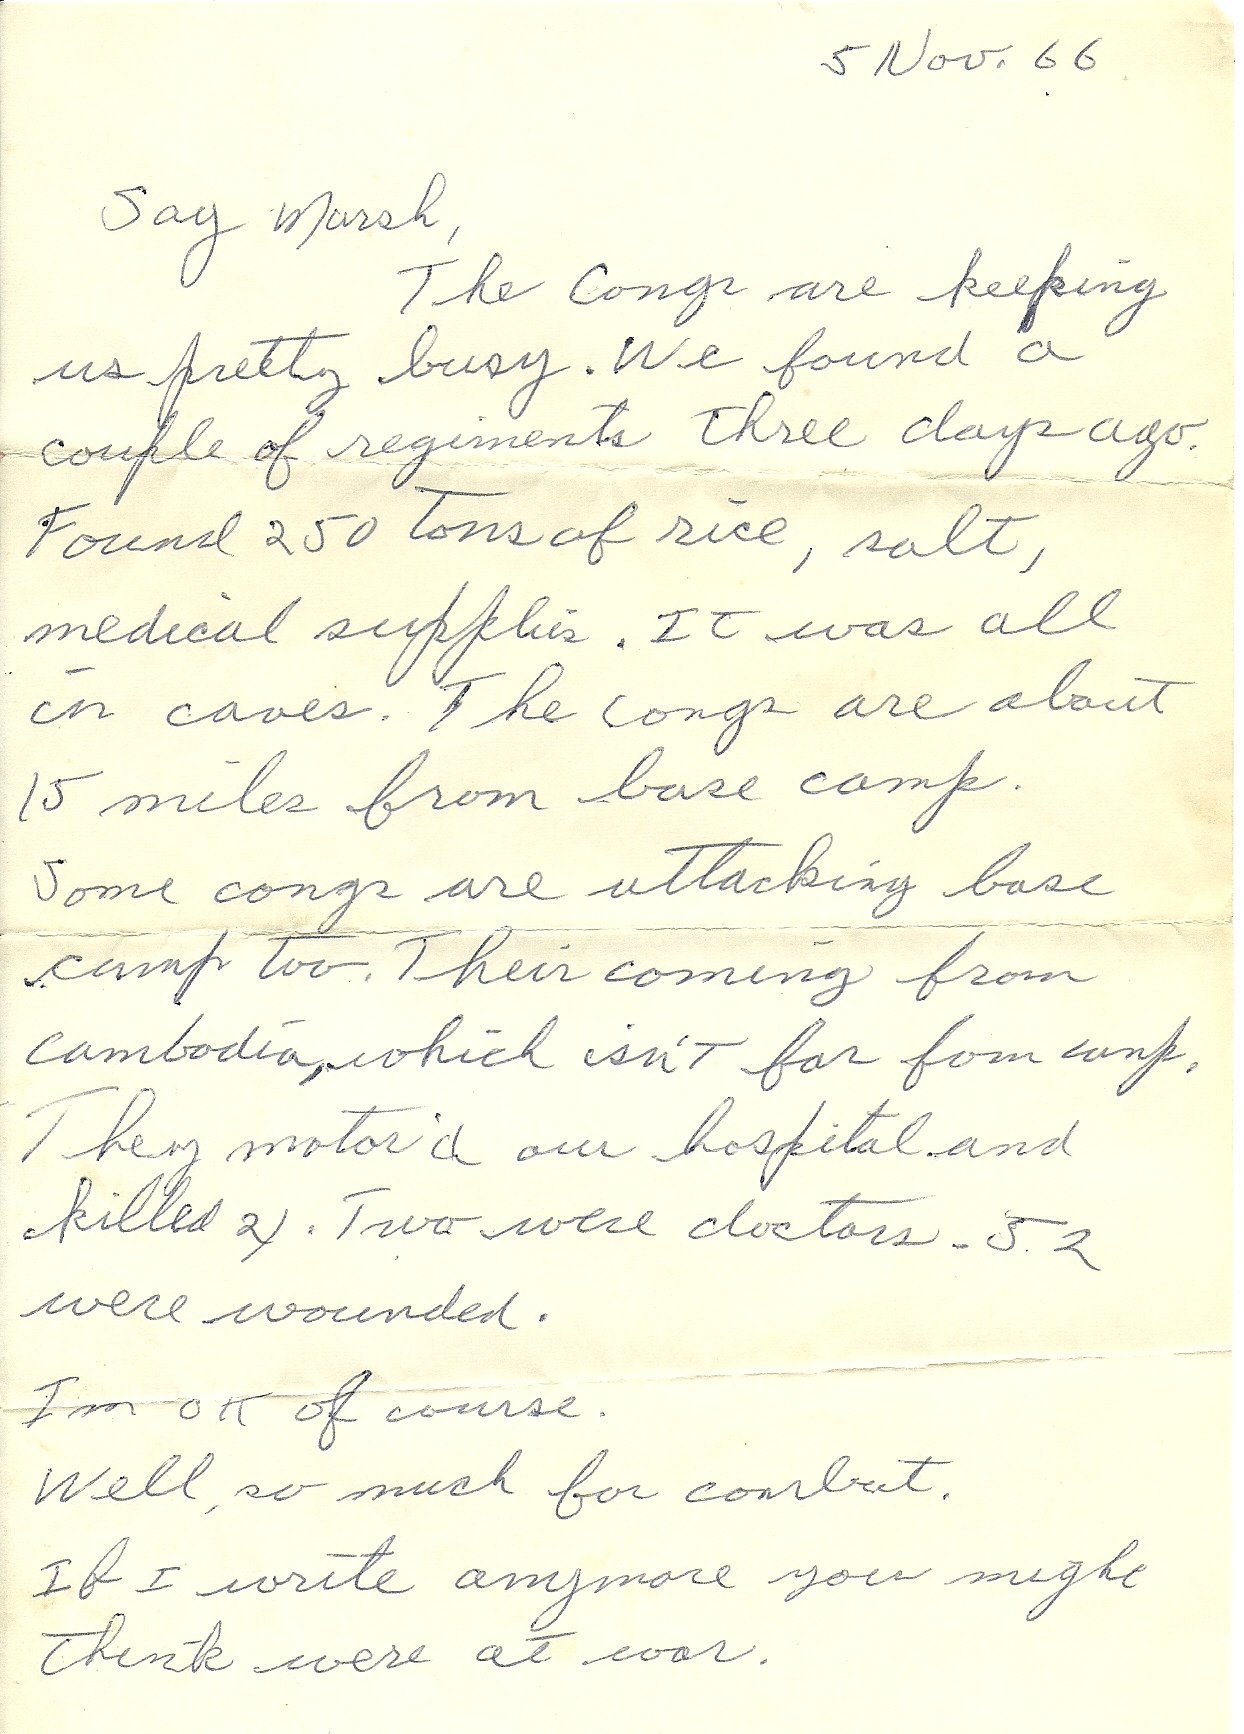 5 Nov. 66
Say Marsh,
The Congs are keeping
us pretty busy. We found a
couple of regiments three days ago.
Found 250 tons of rice, salt,
medical supplies. It was all
in caves. The congs are about
15 miles from base camp.
Some congs are attacking base
camp too. Their coming from
Cambodia, which isn't far fom camp.
They motor'd our hospital and
killed . Two were doctors - 52
were wounded.
Im OK of course.
Well, so much for combat.
If I write anymore you might
think were at war.